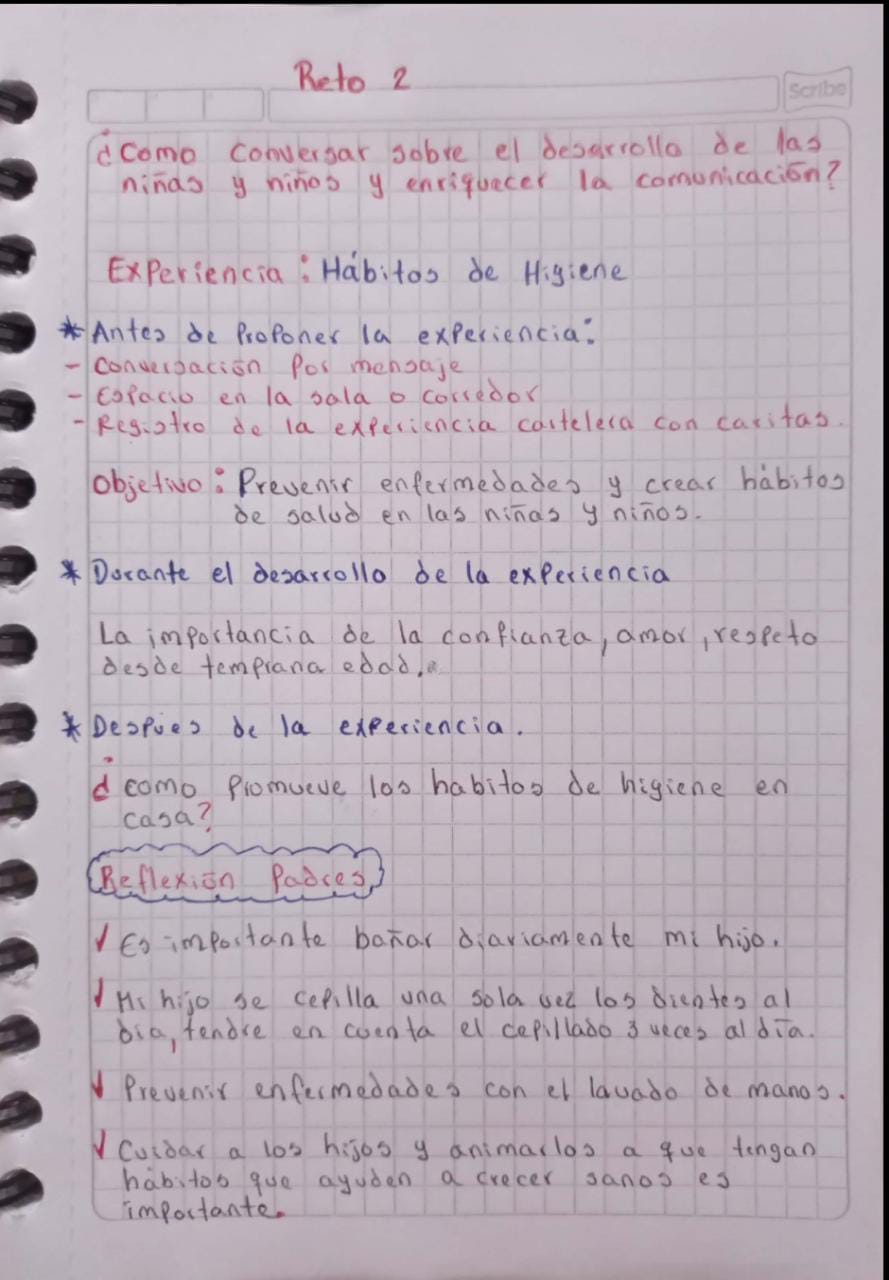 Reto 2
Scribe
¿Como conversar sobre el desarrollo de las
niñas y niños y enriquecer la comunicación?
Experiencia: Hábitos de Higiene
* Antes de Proponer la experiencia:
- Conversación Por mensaje
- Espacio en la sala o corredor
- Registro de la experiencia cartelera con caritas.
Objetivo: Prevenir enfermedades y crear hábitos
de salud en las niñas y niños.
* Durante el desarrollo de la experiencia
La importancia de la confianza, amor, respeto
desde temprana edad.
* Despues de la experiencia.
¿como Promueve los habitos de higiene en
casa?
Reflexión Padres
✓ Es importante bañar diariamente mi hijo.
✓ Mi hijo se cepilla una sola vez los dientes al
día, tendre en cuenta el cepillado 3 veces al día.
✓ Prevenir enfermedades con el lavado de manos.
✓ Cuidar a los hijos y animarlos a que tengan
hábitos que ayuden a crecer sanos es
importante.